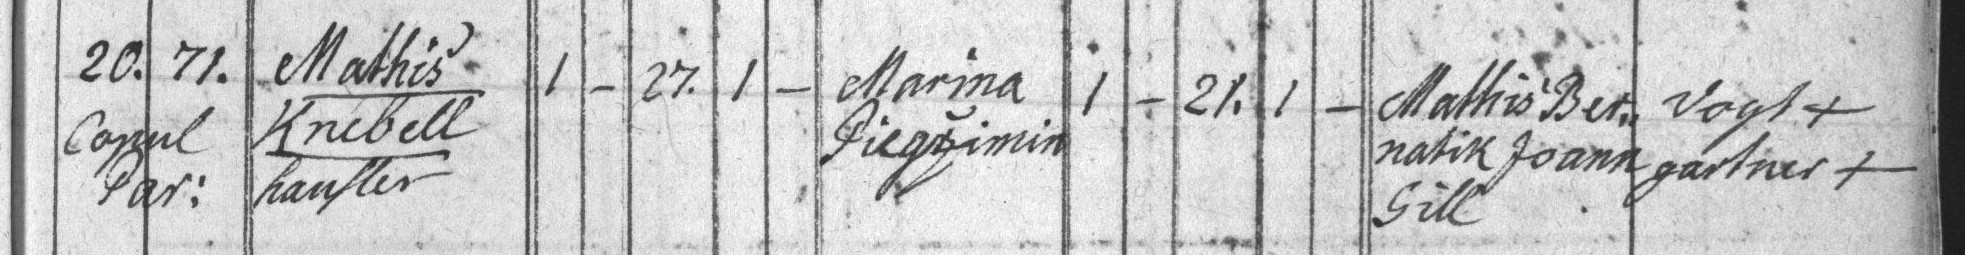 20. 71. Mathis 1 - 27. 1 - Marina 1 - 21. 1 - Mathis Ber„ Vogt +
Copul Knebell Piegžimin natik Joann gartner +
Par: hausler Gill